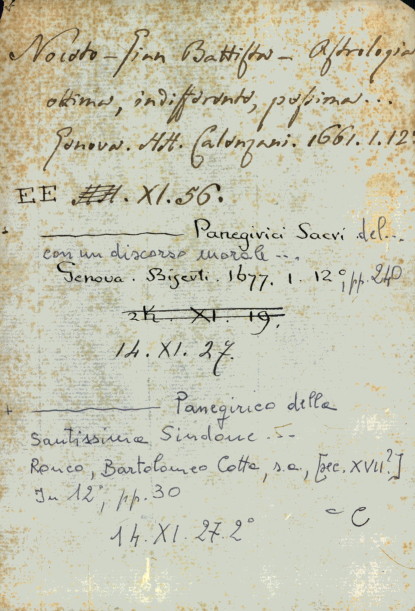 Nocoto - Gian Battista - Astrologia
ottima, indifferente, pessima...
Genova. HH. Calenzani. 1661. 1. 12
EE HH. XI. 56.
Panegirici Sacri del...
con un discorso morale...
Genova. 1677. 1. 12°, pp. 240
2K. XI. 19.
14. XI. 27.
+ Panegirico della
Santissima Sindone...
Ronco, Bartolomeo Cotta, s.a., [sec. XVII?]
In 12°, pp. 30
- C
14. XI. 27. 2°